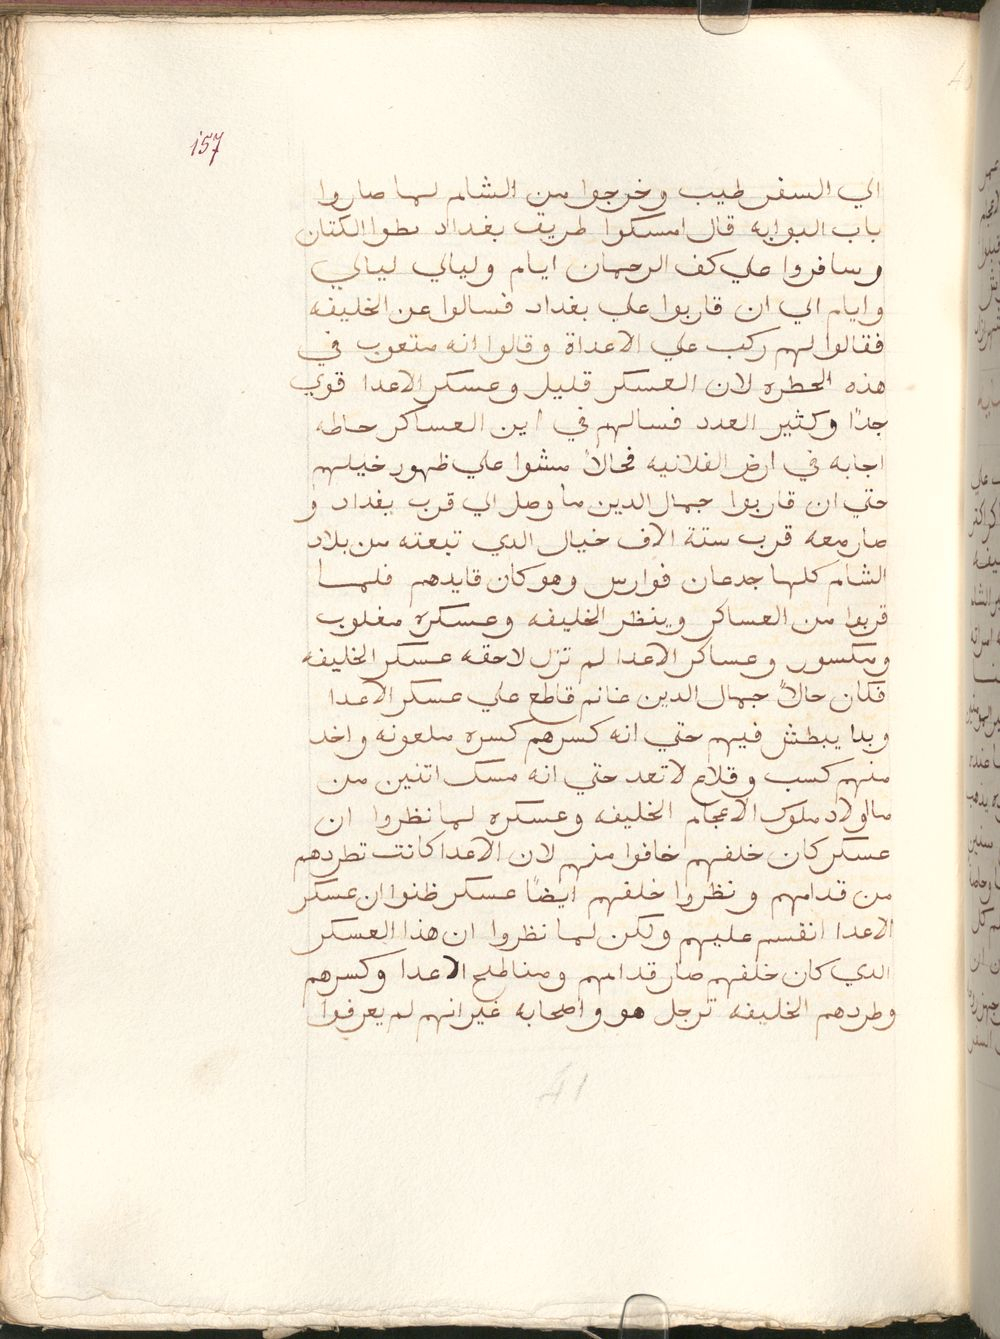 157
الي السفر طيب وخرجوا من الشام لما صاروا
باب البوابه قال امسكوا طريف بغداد بطوا الكتان
وسافروا علي كف الرحمان ايام وليالي ليالي
وايام الي ان قاربوا علي بغداد فسالوا عن الخليفه
فقالوا لهم ركب علي الاعداة وقالوا انه متعوب في
هذه الحطره لان العسكر قليل وعسكر الاعدا قوي
جدًا وكثير العدد فسالهم في اين العساكر حاطه
اجابه في ارض الفلانيه فحالاً مشوا علي ظهور خيلهم
حتي ان قاربوا جمال الدين ما وصل الي قرب بغداد و
صار معه قرب ستة الاف خيال الدي تبعته من بلاد
الشام كلها جدعان فوارس وهو كان قايدهم فلما
قربوا من العساكر وينظر الخليفه وعسكره مغلوب
ومكسور وعساكر الاعدا لم تزل لاحقه عسكر الخليفه
فكان حالاً جمال الدين غانم قاطع علي عسكر الاعدا
وبدا يبطش فيهم حتي انه كسرهم كسره ملعونه واخد
منهم كسب وقلاع لا تعد حتي انه مسك اتنين من
ما اولاد ملوك الاعجام الخليفه وعسكره لما نظروا ان
عسكر كان خلفهم خافوا منهم لان الاعدا كانت تطردهم
من قدامهم ونظروا خلفهم ايضًا عسكر ظنوا ان عسكر
الاعدا انقسم عليهم ولكن لما نظروا ان هذا العسكر
الدي كان خلفهم صار قدامهم ومناطح الاعدا وكسرهم
وطردهم الخليفه ترجل هو واصحابه غيرانهم لم يعرفوا